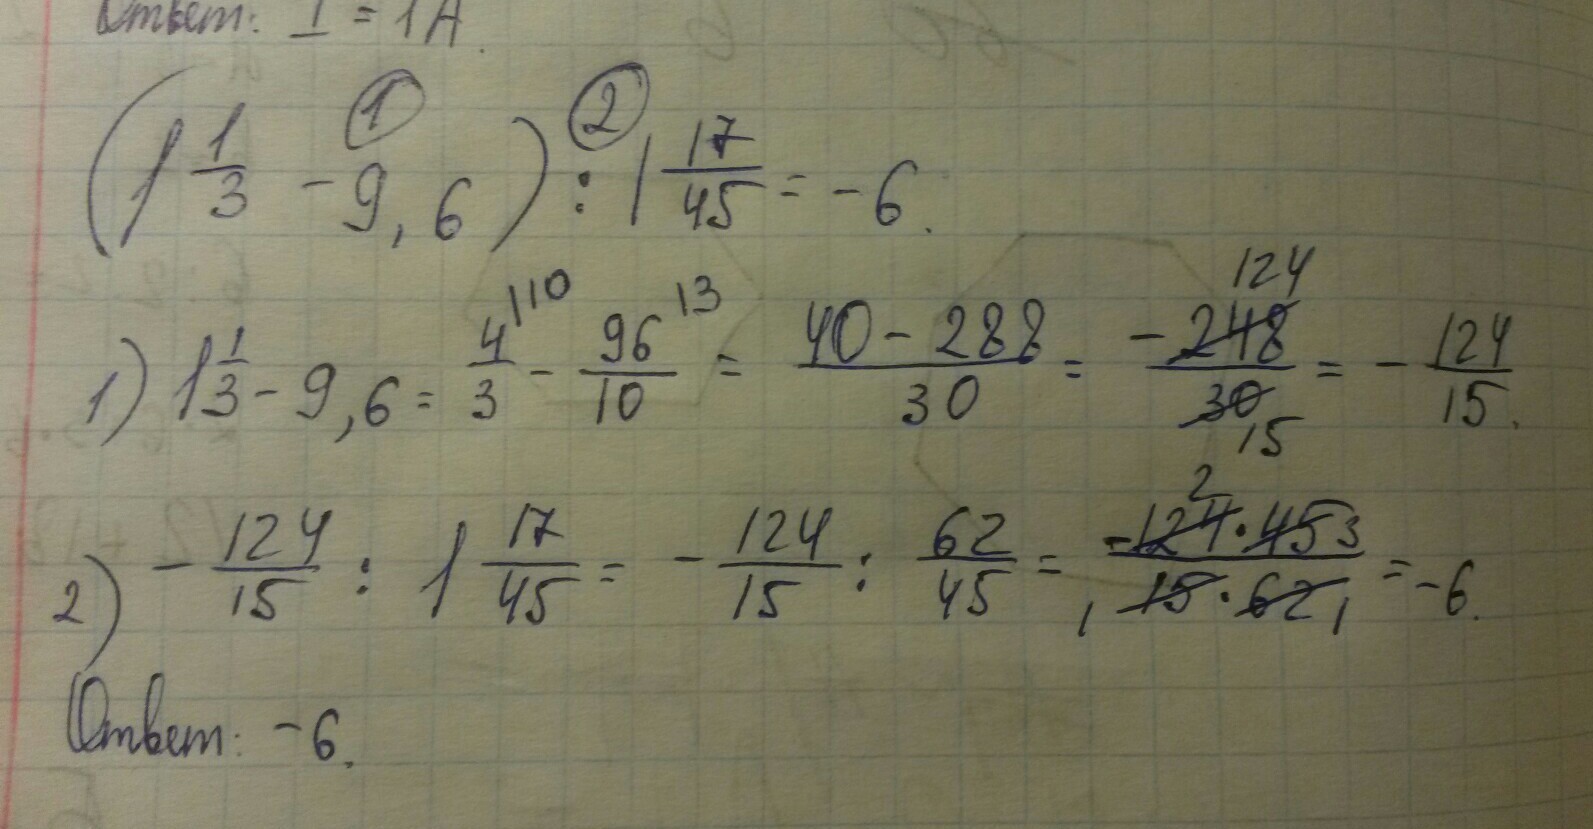 Ответ: I = 1A.
① ②
(1 1/3 - 9,6) : 1 17/45 = -6.
1) 1 1/3 - 9,6 = 4/3 |10 - 96/10 |3 = 40 - 288/30 = -248/30 124 15 = - 124/15.
2) - 124/15 : 1 17/45 = - 124/15 : 62/45 = -124 · 45/15 · 62 2 3 1 1 = -6.
Ответ: -6.